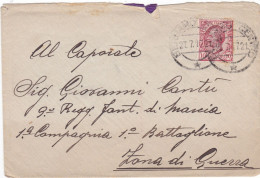 Al Caporale
Sig. Giovanni Cantù
9º Regg. fant. di marcia
1ª Compagnia 1º Battaglione
Zona di Guerra